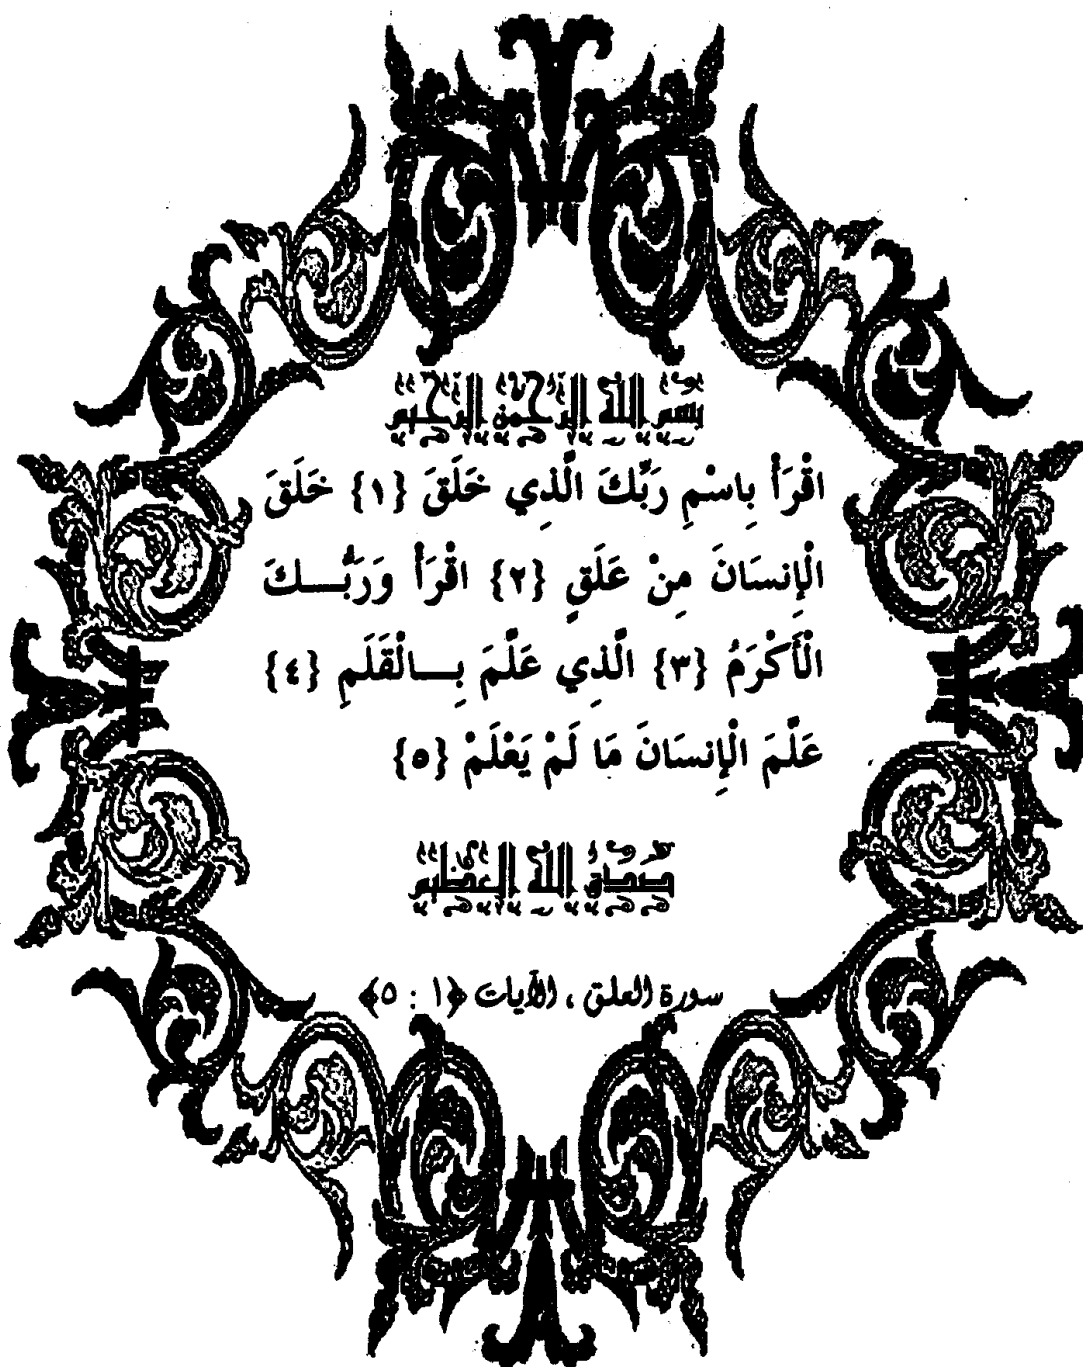 بسم الله الرحمن الرحيم
اقْرَأْ بِاسْمِ رَبِّكَ الَّذِي خَلَقَ {١} خَلَقَ
الْإِنسَانَ مِنْ عَلَقٍ {٢} اقْرَأْ وَرَبُّـــكَ
الْأَكْرَمُ {٣} الَّذِي عَلَّمَ بِـــالْقَلَمِ {٤}
عَلَّمَ الْإِنسَانَ مَا لَمْ يَعْلَمْ {٥}
صدق الله العظيم
سورة العلق ، الآيات ﴿١ : ٥﴾